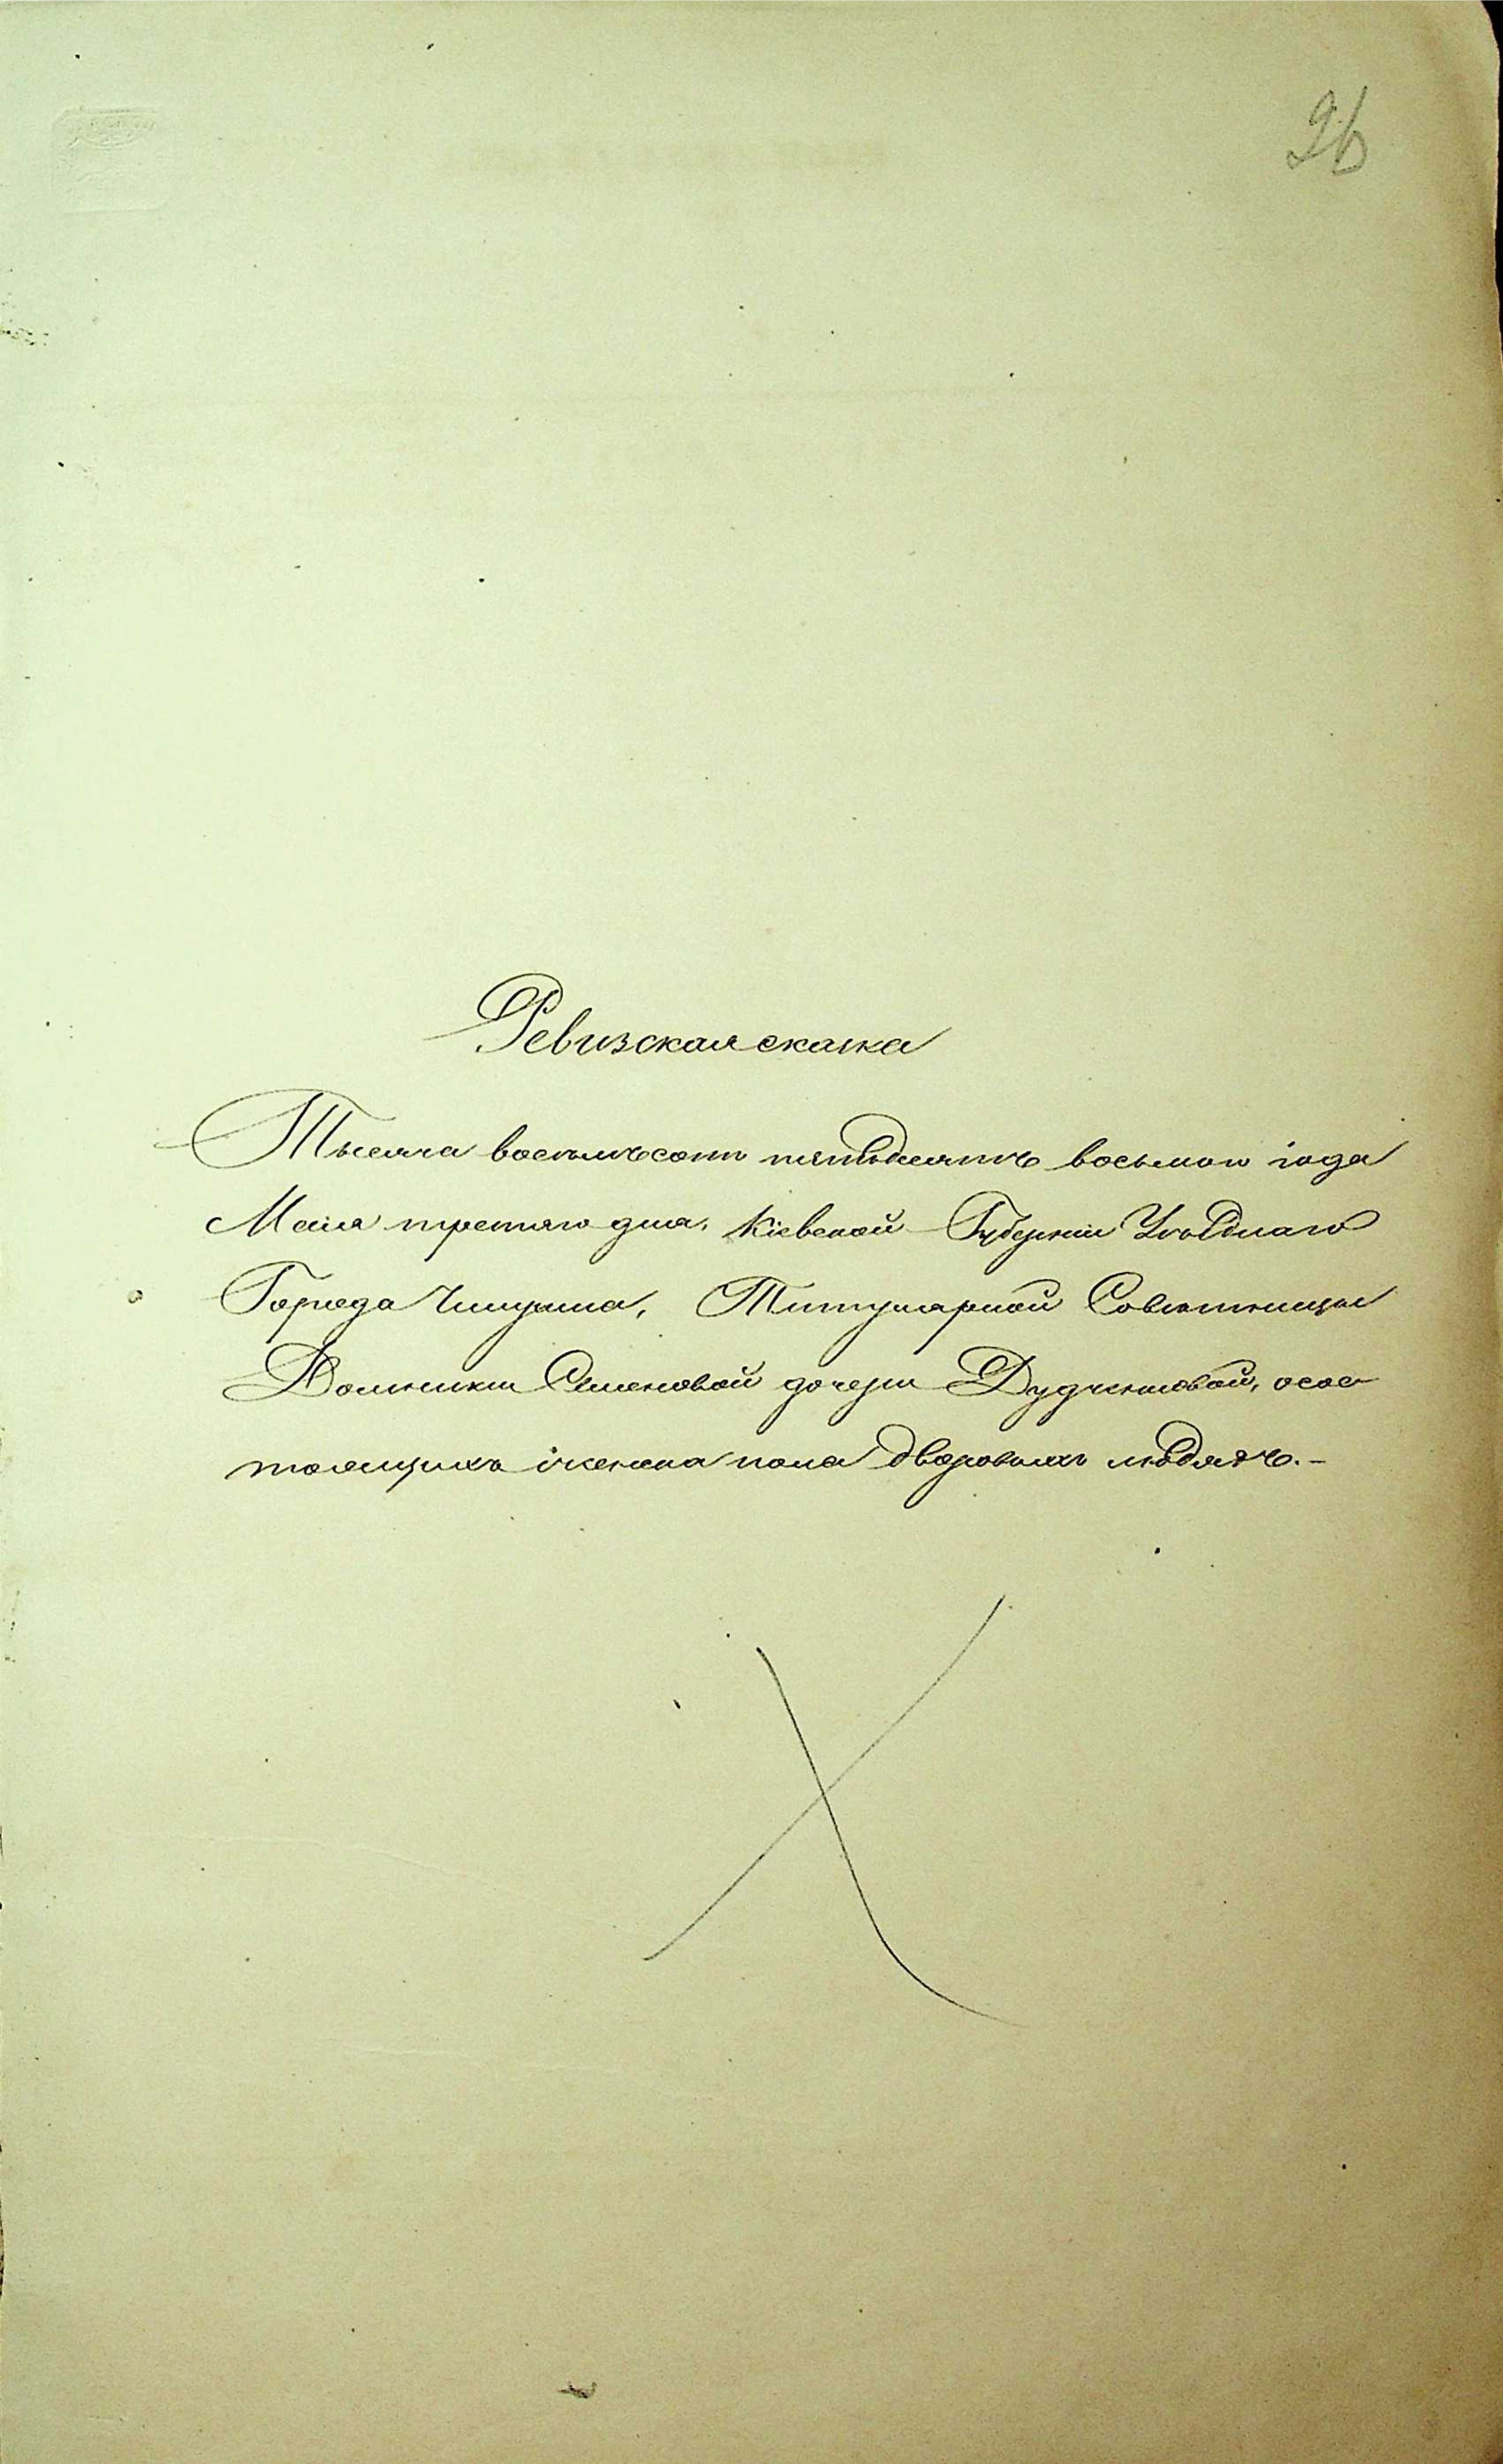 26
Ревизская сказка
Тысяча восемьсотъ пятьдесятъ восьмаго года
Маія третяго дня. Кіевской Губерніи Уѣзднаго
Города Чигирина, Титулярной Совѣтницы
Домникіи Семеновой дочери Дудченковой, осос
тоящихъ іженска пола дворовыхъ людяхъ.-